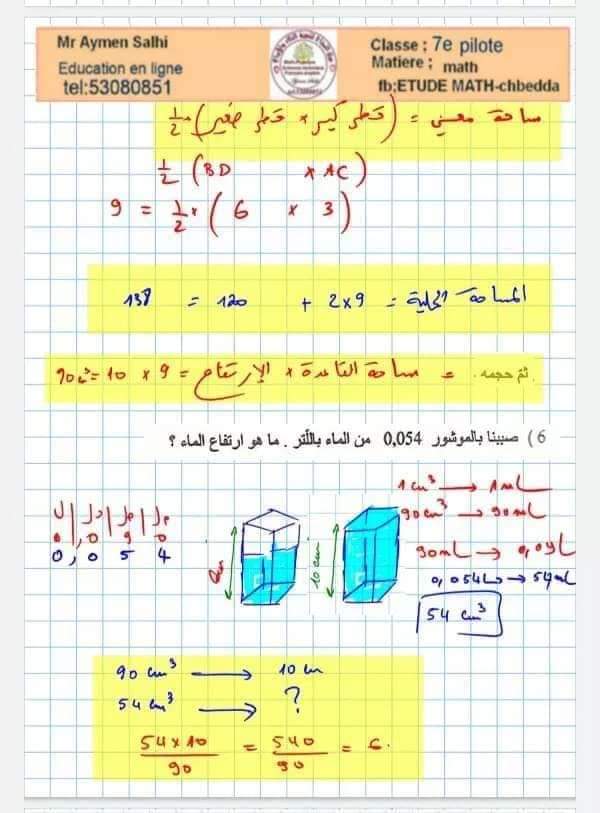 Mr Aymen Salhi
Education en ligne
tel:53080851
Classe ; 7e pilote
Matiere ; math
fb;ETUDE MATH-chbedda
مساحة معين = (قطر كبير × قطر صغير) × 1/2
1/2 (BD × AC)
9 = 1/2 × (6 × 3)
المساحة الجملية = 2×9 + 120 = 138
ثمّ حجمه. = مساحة القاعدة × الإرتفاع = 9 × 10 = 90 cm³
6 ) صببنا بالموشور 0,054 من الماء باللّتر . ما هو ارتفاع الماء ؟
1 cm³ → 1 mL
90 cm³ → 90 mL
90 mL → 0,09 L
0,054 L → 54 mL
54 cm³
ل | دل | صل | مل
0 , 0 9 0
0 , 0 5 4
10 cm
90 cm³ → 10 cm
54 cm³ → ?
54 × 10 / 90 = 540 / 90 = 6.